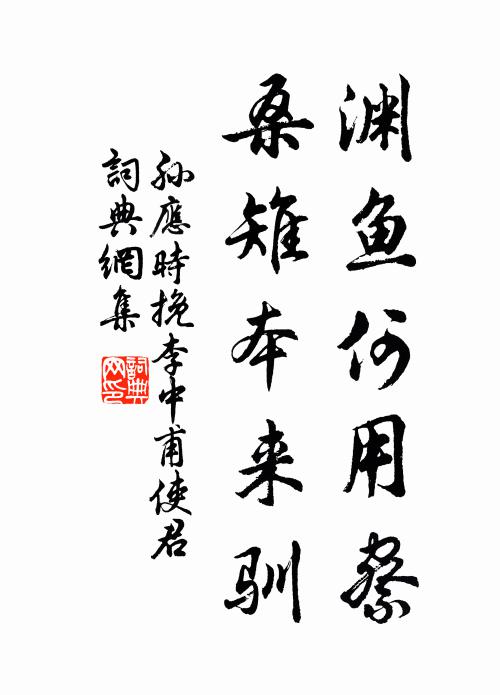 渊鱼何用察
桑雉本来驯
孙應時挽李中甫使君
詞典網集
詞典网印